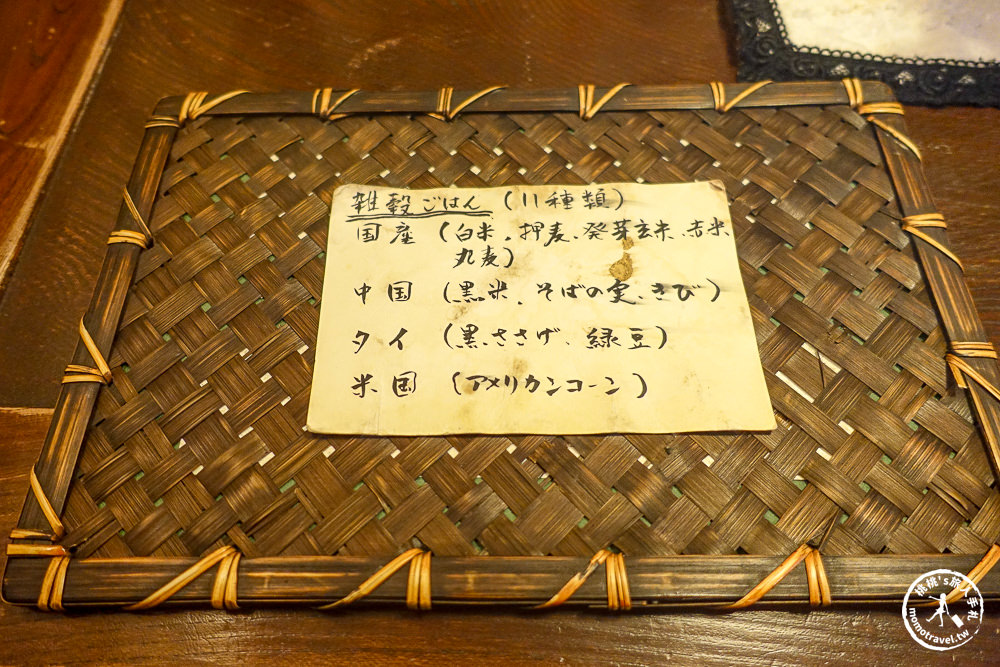 雑穀ごはん (11種類)
国産 (白米、押麦、発芽玄米、赤米、
丸麦)
中国 (黒米、そばの実、きび)
タイ (黒ささげ、緑豆)
米国 (アメリカンコーン)
桃桃's旅人手札
momotravel.tw